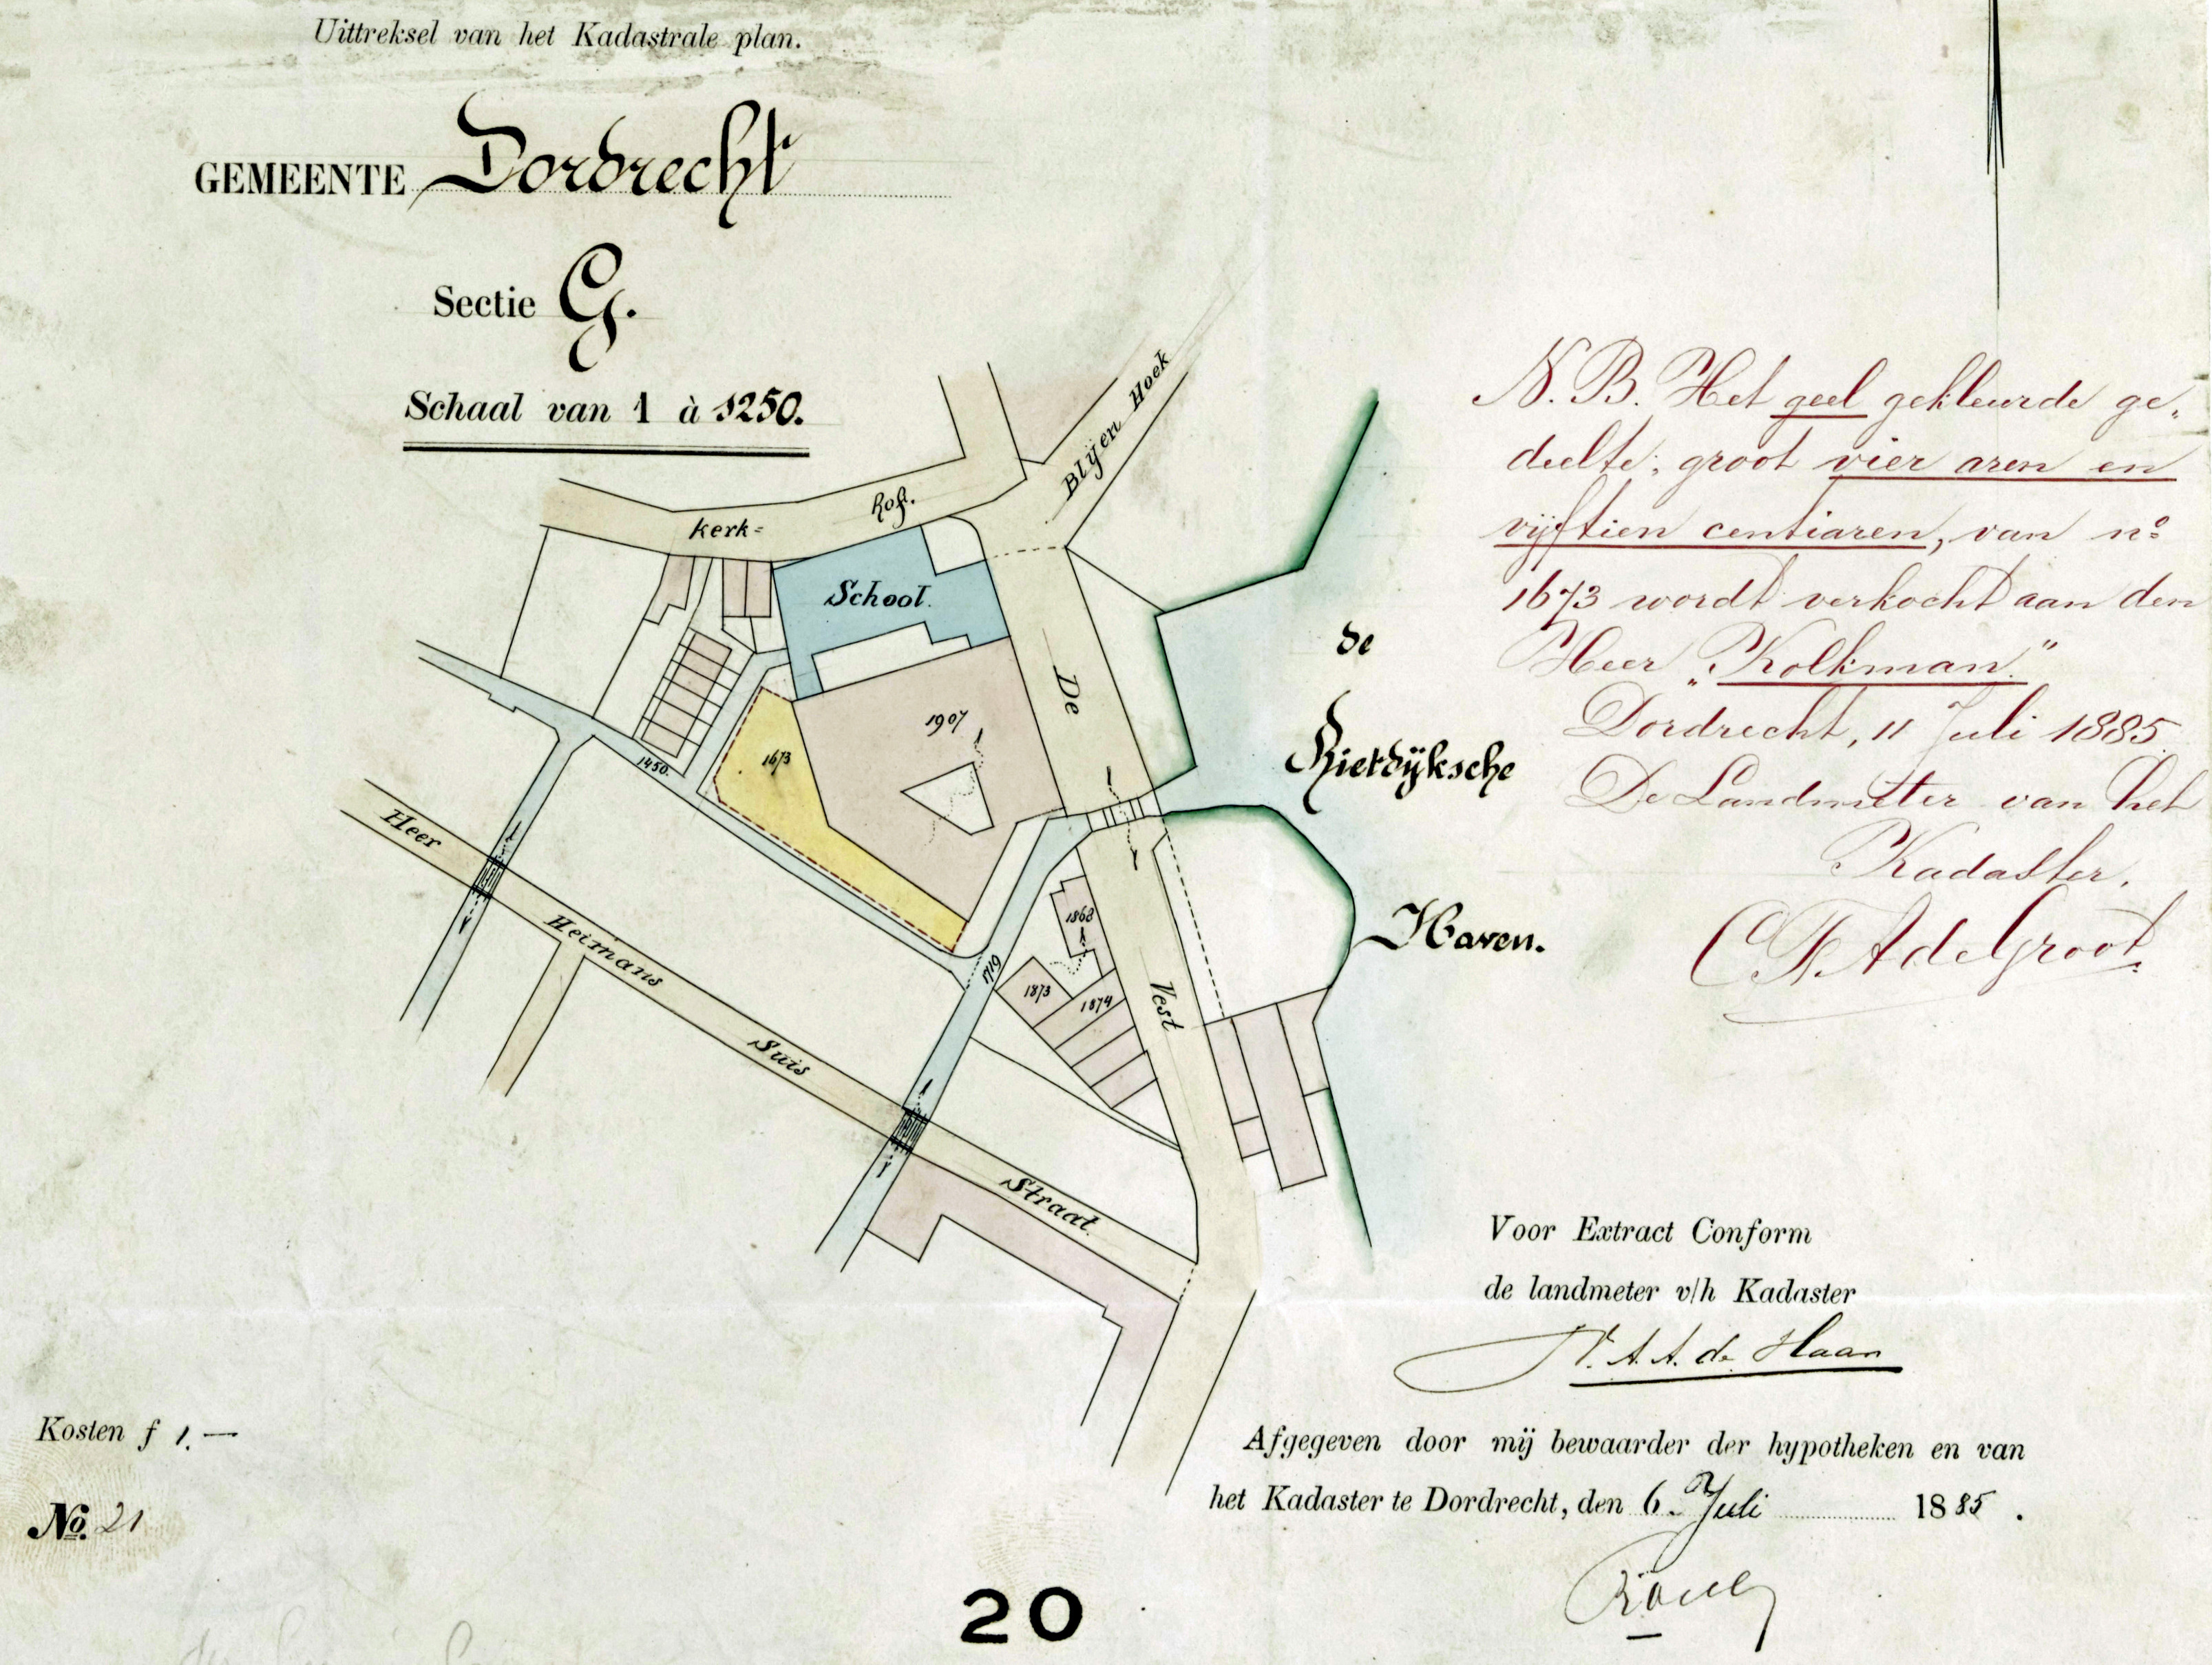 Uittreksel van het Kadastrale plan.
GEMEENTE Dordrecht
Sectie G.
Schaal van 1 à 1250.
N.B. Het geel gekleurde ge,
deelte, groot vier aren en
vijftien centiaren, van no
1673 wordt verkocht aan den
Heer „Kolkman."
Dordrecht, 11 Juli 1885
De Landmeter van het
Kadaster.
C F A de Groot
Blijen Hoek
Kerk= hof.
School.
De Vest
1907
1673
1450.
1719
1868
1873
1874
Heer Heimans Suis Straat.
de
Rietdijksche
Haven.
Voor Extract Conform
de landmeter v/h Kadaster
A. A. de Haan
Kosten f 1.—
No. 21
Afgegeven door mij bewaarder der hypotheken en van
het Kadaster te Dordrecht, den 6. Juli 1885.
20